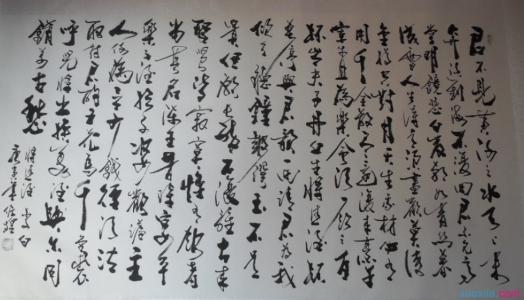 君不見黃河之水天上來
奔流到海不復回君不見高
堂明鏡悲白髮朝如青絲暮
成雪人生得意須盡歡莫使
金樽空對月天生我材必有
用千金散盡還復來烹羊
宰牛且為樂會須一飲三百
杯岑夫子丹丘生將進酒杯
莫停與君歌一曲請君為我
傾耳聽鐘鼓饌玉不足
貴但願長醉不復醒古來
聖賢皆寂寞惟有飲者
留其名陳王昔時宴平
樂斗酒十千恣歡謔主
人何為言少錢徑須沽
取對君酌五花馬千金裘
呼兒將出換美酒與爾同
銷萬古愁
將進酒 李白